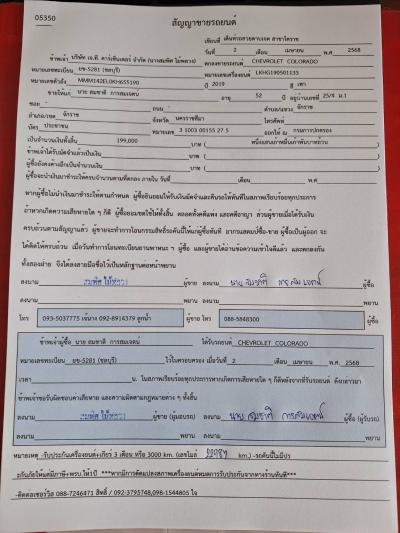 05350
สัญญาขายรถยนต์
เขียนที่ เต็นท์รถสวยดาบเดช สาขาโคราช
วันที่ 2 เดือน เมษายน พ.ศ. 2568
ข้าพเจ้า บริษัท เจ.ที. คาร์เซ็นเตอร์ จำกัด (นางสมพิศ ไม้หลวง) ตกลงขายรถยนต์ CHEVROLET COLORADO
หมายเลขทะเบียน ยข-5281 (ชลบุรี) หมายเลขเครื่องยนต์ LKHG190501133
หมายเลขตัวถัง MMM142EL0KH655190 ปี 2019 สี เทา
ขายให้แก่ นาย สมชาติ การสมเจตน์ อายุ 52 ปี อยู่บ้านเลขที่ 25/4 ม.1
ซอย - ถนน - ตำบล/แขวง จักราช
อำเภอ/เขต จักราช จังหวัด นครราชสีมา โทรศัพท์
บัตร ประชาชน หมายเลข 3 1003 00155 27 5 ออกให้ ณ กรมการปกครอง
เป็นจำนวนเงินทั้งสิ้น 199,000 บาท ( หนึ่งแสนเก้าหมื่นเก้าพันบาทถ้วน )
ข้าพเจ้าได้รับมัดจำแล้วเป็นเงิน บาท ( )
ผู้ซื้อยังคงค้างอีกเป็นจำนวนเงิน บาท ( )
ผู้ซื้อจะนำเงินมาชำระให้ครบจำนวนตามที่ตกลง ภายใน วันที่ เดือน พ.ศ.
หากผู้ซื้อไม่นำเงินมาชำระให้ตามกำหนด ผู้ซื้อยินยอมให้ริบเงินมัดจำและคืนรถให้ทันทีในสภาพเรียบร้อยทุกประการ
ถ้าหากเกิดความเสียหายใด ๆ ก็ดี ผู้ซื้อยอมชดใช้ให้ทั้งสิ้น ตลอดทั้งคดีแพ่ง และคดีอาญา ส่วนผู้ขายเมื่อได้รับเงิน
ครบถ้วนตามสัญญาแล้ว ผู้ขายจะทำการโอนกรรมสิทธิ์รถคันนี้ให้แก่ผู้ซื้อทันที อากรแสตมป์ซื้อ-ขาย ผู้ซื้อเป็นผู้ออก จะ
ได้คิดให้ครบถ้วน เมื่อวันทำการโอนทะเบียนยานพาหนะ ๆ ผู้ซื้อ และผู้ขายได้อ่านข้อความเข้าใจดีแล้ว และตกลงกัน
ทั้งสองฝ่าย จึงได้ลงลายมือชื่อไว้เป็นหลักฐานต่อหน้าพยาน
ลงนาม สมพิศ ไม้หลวง ผู้ขาย ลงนาม นาย สมชาติ การสมเจตน์ ผู้ซื้อ
ลงนาม พยาน ลงนาม พยาน
โทร 093-5037775 เจ้นาง 092-8914379 ลูกน้ำ ผู้ขาย โทร 088-5848300 ผู้ซื้อ
ข้าพเจ้าผู้ซื้อ นาย สมชาติ การสมเจตน์ ได้รับรถยนต์ CHEVROLET COLORADO
หมายเลขทะเบียน ยข-5281 (ชลบุรี) ไว้ในครอบครอง เมื่อวันที่ 2 เดือน เมษายน พ.ศ. 2568
เวลา น. ในสภาพเรียบร้อยทุกประการหากเกิดการเสียหายใด ๆ ก็ดีหลังจากที่รับรถยนต์ ดังกล่าวมา
ข้าพเจ้าขอรับผิดชอบค่าเสียหาย และความผิดตามกฎหมายต่าง ๆ ทั้งสิ้น
ลงนาม สมพิศ ไม้หลวง ผู้ขาย (ผู้มอบรถ) ลงนาม นาย สมชาติ การสมเจตน์ ผู้ซื้อ (ผู้รับรถ)
ลงนาม พยาน ลงนาม พยาน
หมายเหตุ -รับประกันเครื่องยนต์+เกียร์ 3 เดือน หรือ 3000 km. (เลขไมล์ km.) -รถคันนี้ไม่มีปร
ะกันภัยให้แต่มีภาษี+พรบ.ให้1ปี ***หากมีการดัดแปลงสภาพเครื่องยนต์หมดการรับประกันจากทางร้านทันที***
-ติดต่อเซอร์วิส 088-7246471 สิทธิ์ / 092-3795748,098-1544805 ใจ